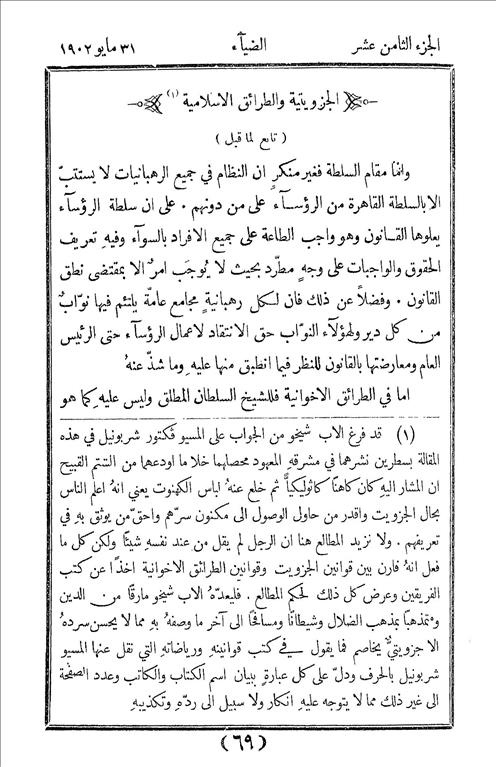 الجزء الثامن عشر الضيآء ٣١ مايو ١٩٠٢
الجزويتية والطرائق الاسلامية (١)
( تابع لما قبل )
واما مقام السلطة فغير منكرٍ ان النظام في جميع الرهبانيات لا يستتبّ
الا بالسلطة القاهرة من الرؤسآء على من دونهم . على ان سلطة الرؤسآء
يعلوها القانون وهو واجب الطاعة على جميع الافراد بالسوآء وفيهِ تعريف
الحقوق والواجبات على وجهٍ مطّرد بحيث لا يُوجَب امرٌ الا بمقتضى نطق
القانون . وفضلاً عن ذلك فان لكل رهبانيةٍ مجامع عامّة يلتئم فيها نوّابٌ
من كل دير ولهؤلآء النوّاب حق الانتقاد لاعمال الرؤسآء حتى الرئيس
العام ومعارضتها بالقانون للنظر فيما انطبق منها عليهِ وما شذّ عنهُ
اما في الطرائق الاخوانية فللشيخ السلطان المطلق وليس عليهِ كما هو
(١) قد فرغ الاب شيخو من الجواب على المسيو فكتور شربونيل في هذه
المقالة بسطرين نشرهما في مشرقهِ المعهود محصلهما خلا ما اودعها من الشتم القبيح
ان المشار اليهِ كان كاهنًا كاثوليكيًّا ثم خلع عنهُ لباس الكهنوت يعني انهُ اعلم الناس
بحال الجزويت واقدر من حاول الوصول الى مكنون سرّهم واحقّ من يوثق بهِ في
تعريفهم . ولا نزيد المطالع هنا ان الرجل لم يقل من عند نفسهِ شيئًا ولكن كل ما
فعل انهُ قارن بين قوانين الجزويت وقوانين الطرائق الاخوانية اخذًا عن كتب
الفريقين وعرض كل ذلك لحكم المطالع . فليعدّهُ الاب شيخو مارقًا من الدين
ومتمذهبًا بمذهب الضلال وشيطانًا ومسافحًا الى آخر ما وصفهُ بهِ مما لا يحسن سردهُ
الا جزويتيٌّ يخاصم فما يقول في كتب قوانينهِ ورياضاتهِ التي نقل عنها المسيو
شربونيل بالحرف ودلّ على كل عبارةٍ ببيان اسم الكتاب والكاتب وعدد الصفحة
الى غير ذلك مما لا يتوجه عليهِ انكار ولا سبيل الى ردّهِ وتكذيبهِ
(٦٩)